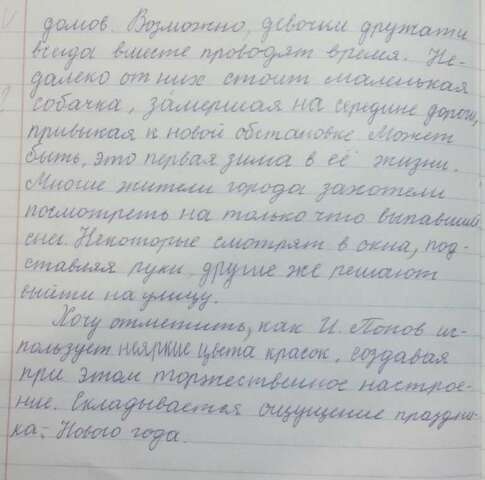 домов. Возможно, девочки дружат и
всегда вместе проводят время. Не-
далеко от них стоит маленькая
собачка, замершая на середине дороги,
привыкая к новой обстановке. Может
быть, это первая зима в её жизни.
Многие жители города захотели
посмотреть на только что выпавший
снег. Некоторые смотрят в окна, под-
ставляя руки, другие же решают
выйти на улицу.
Хочу отметить, как И. Попов ис-
пользует неяркие цвета красок, создавая
при этом торжественное настрое-
ние. Складывается ощущение праздни-
ка: Нового года.